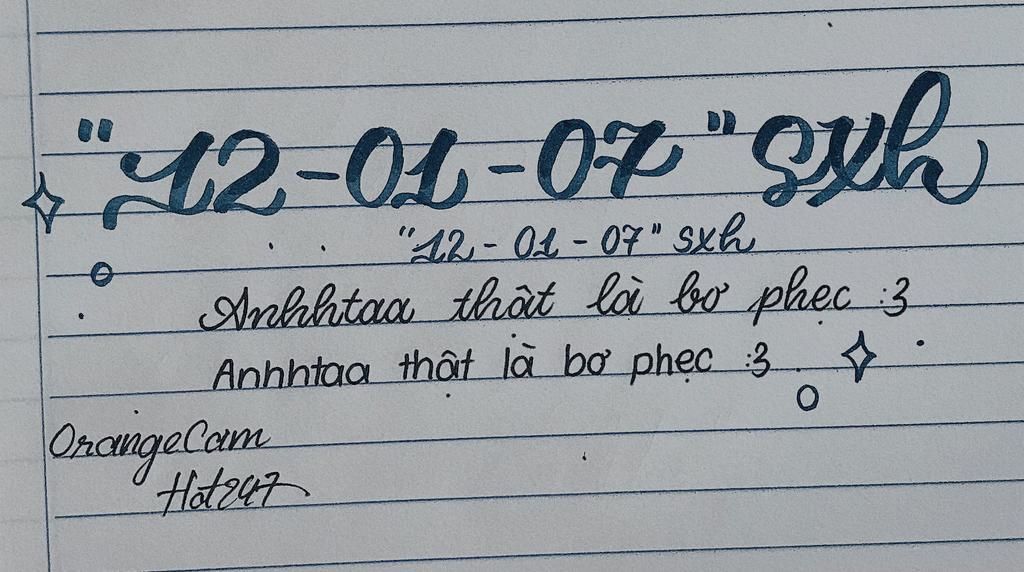 "12-01-07" sxh
"12 - 01 - 07" sxh
Anhhtaa thật là bơ phẹc :3
Anhhtaa thật là bơ phẹc :3
OrangeCam
Hot247